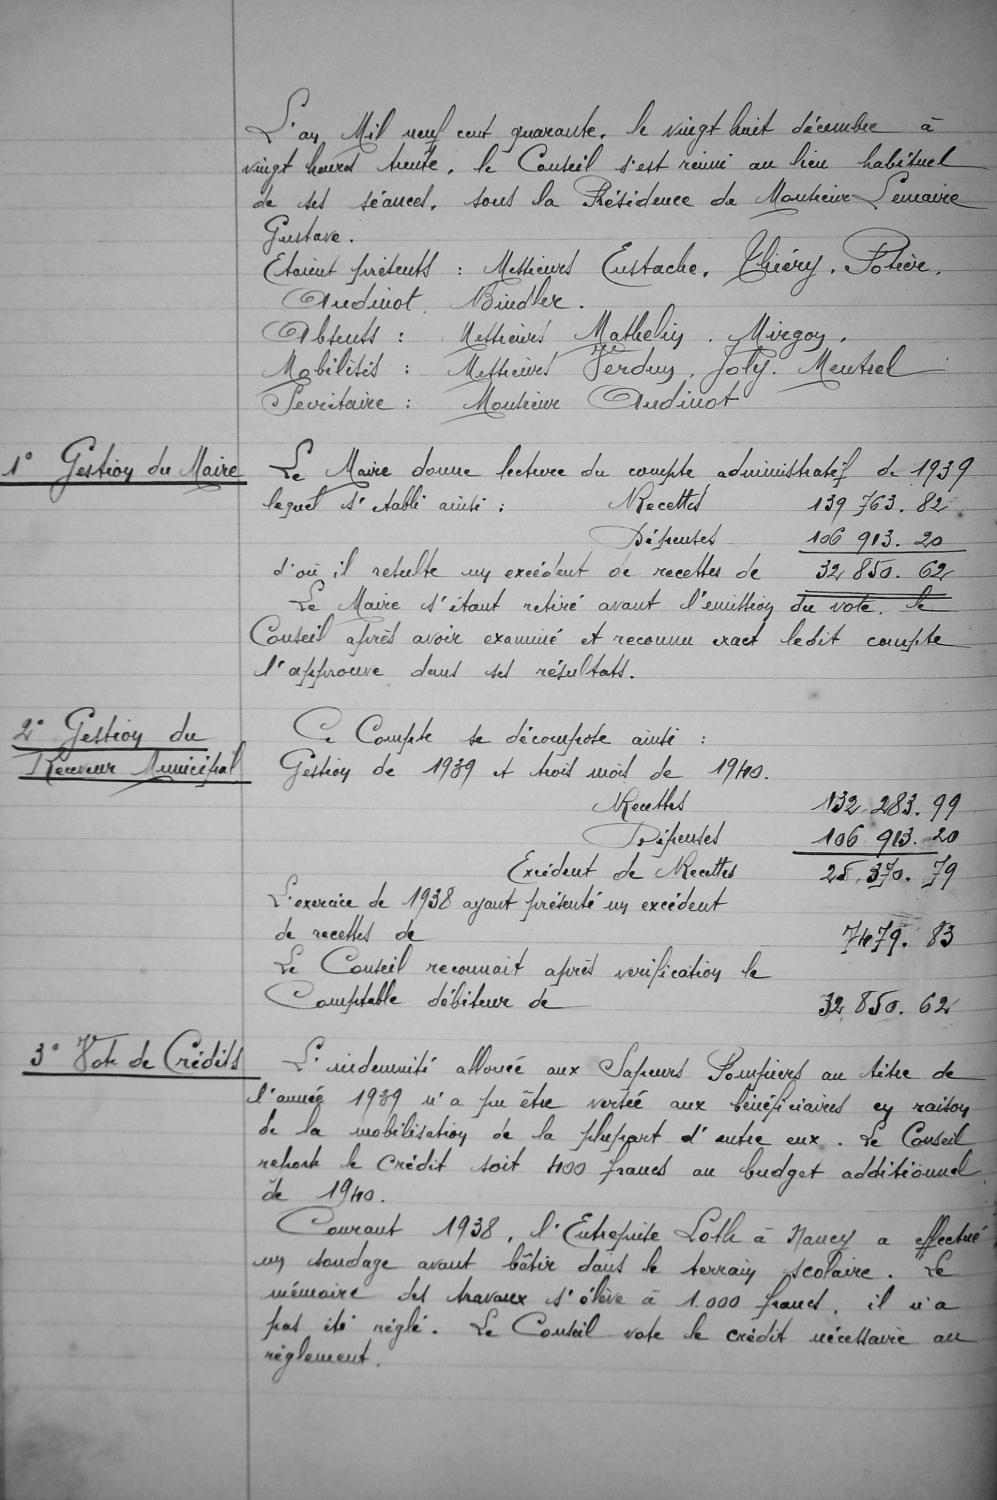 L'an Mil neuf cent quarante, le vingt huit décembre à
vingt heures trente, le Conseil s'est réuni au lieu habituel
de ses séances, sous la Présidence de Monsieur Lemaire
Gustave.
Etaient présents : Messieurs Eustache, Thiéry, Potier,
Audinot, Bindler.
Absents : Messieurs Mathelin, Mirgon,
Mobilisés : Messieurs Verdun, Joly, Mentrel
Secrétaire : Monsieur Audinot
1° Gestion du Maire
Le Maire donne lecture du compte administratif de 1939
lequel s'établi ainsi : Recettes 139 763. 82
Dépenses 106 913. 20
d'où il resulte un excédent de recettes de 32 850. 62
Le Maire s'étant retiré avant l'émission du vote, le
Conseil après avoir examiné et reconnu exact ledit compte
l'approuve dans ses résultats.
2° Gestion du
Receveur Municipal
Ce Compte se décompose ainsi :
Gestion de 1939 et trois mois de 1940.
Recettes 132 283. 99
Dépenses 106 913. 20
Excédent de Recettes 25 370. 79
L'exercice de 1938 ayant présenté un excédent
de recettes de 7479. 83
Le Conseil reconnait après verification le
Comptable débiteur de 32 850. 62
3° Vote de Crédits
L'indemnité allouée aux Sapeurs Pompiers au titre de
l'année 1939 n'a pu être versée aux bénéficiaires en raison
de la mobilisation de la plupart d'entre eux. Le Conseil
reporte le crédit soit 400 francs au budget additionnel
de 1940.
Courant 1938, l'Entreprise Loth à Nancy a effectué
un sondage avant bâtir dans le terrain scolaire. Le
mémoire des travaux s'élève à 1.000 francs, il n'a
pas été réglé. Le Conseil vote le crédit nécessaire au
règlement.